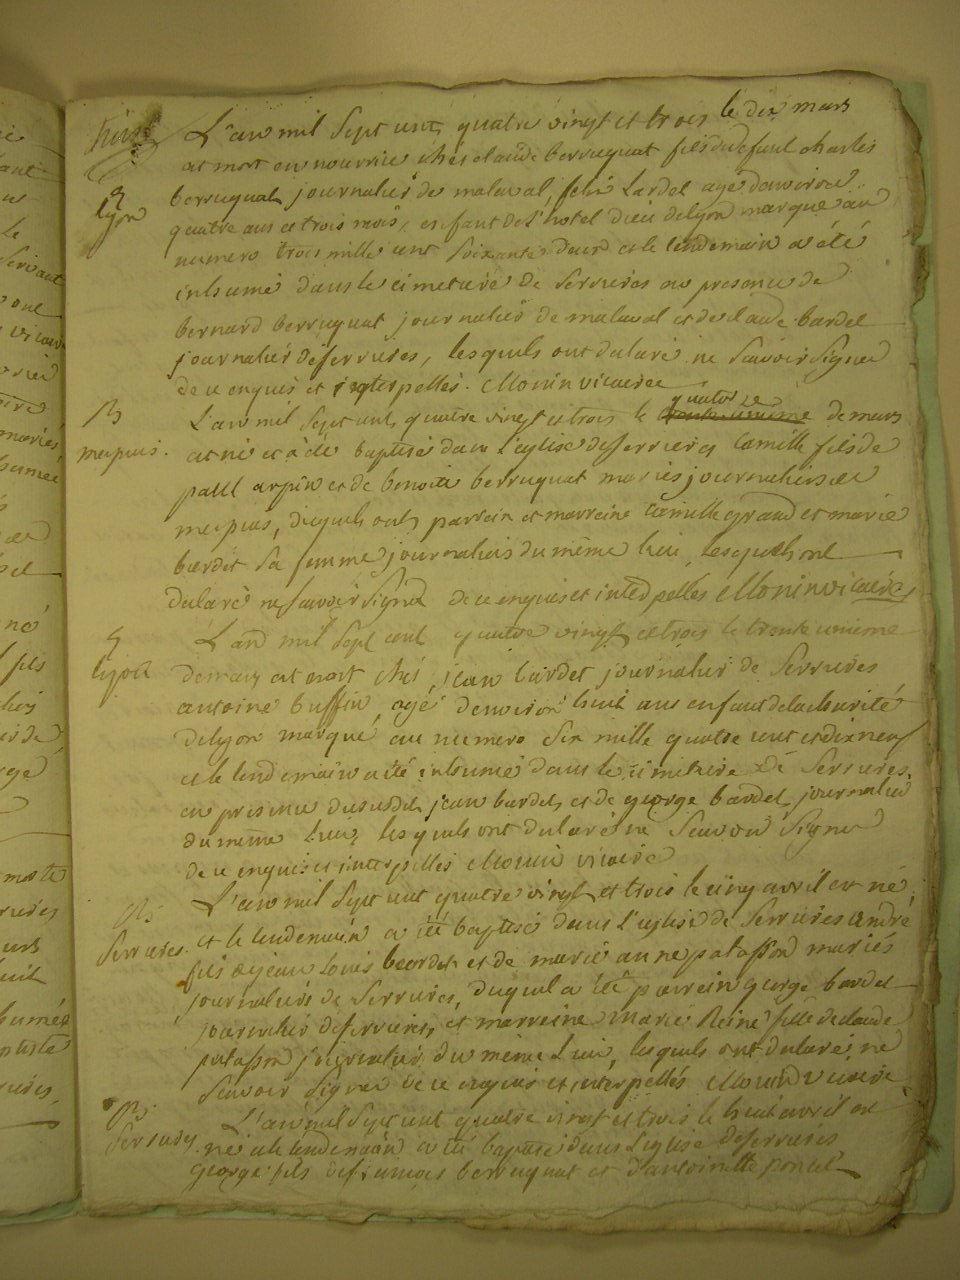 L'an mil sept cent quatre vingt et trois le dix mars
est mort en nourrice chés claude berruquat fils du defunt charles
berruquat journalier de malaval, felix Lardet agé d'environ
Lyon
quatre ans et trois mois, enfant de l'hotel dieu de lyon marqué au
numero trois mille cent soixante deux et le lendemain a été
inhumé dans le cimetiere de serrieres en presence de
bernard berruquat journalier de malaval et de claude bardel
journalier de serrieres, lesquels ont declaré ne scavoir signer
de ce enquis et interpellés. Monin vicaire
B
L'an mil sept cent quatre vingt et trois le quatorze de mars
mepuis.
est né et a été baptisé dans l'eglise de serrieres Camille fils de
paul arpin et de benoite berruquat mariés journaliers de
mepuis, duquel ont parrein et marreine Camille grand et marie
bardet sa femme journaliers du même lieu, lesquels ont
declaré ne scavoir signer de ce enquis et interpellés Monin vicaire
L'an mil sept cent quatre vingt et trois le trente unieme
lyon
de mars est mort chés jean bardet journalier de serrieres
antoine buffin agé d'environ huit ans enfant de la charité
de lyon marqué au numero six mille quatre cent et dix neuf
et le lendemain a été inhumé dans le cimetiere de serrieres
en presence du susdit jean bardet et de george bardet journalier
du même lieu, lesquels ont declaré ne scavoir signer
de ce enquis et interpellés Monin vicaire
L'an mil sept cent quatre vingt et trois le cinq avril est né
B
serrieres.
et le lendemain a été baptisé dans l'eglise de serrieres andré
fils de jean Louis bardet et de marie anne patasson mariés
journaliers de serrieres, duquel a été parrein george bardet
journalier de serrieres, et marreine marie Reine fille de claude
patasson journalier du même Lieu, lesquels ont declaré ne
scavoir signer de ce enquis et interpellés Monin vicaire
B
serrieres
L'an mil sept cent quatre vingt et trois le huit avril est
né et le lendemain a été baptisé dans l'eglise de serrieres
george fils de francois berruquat et d'antoinette poncet